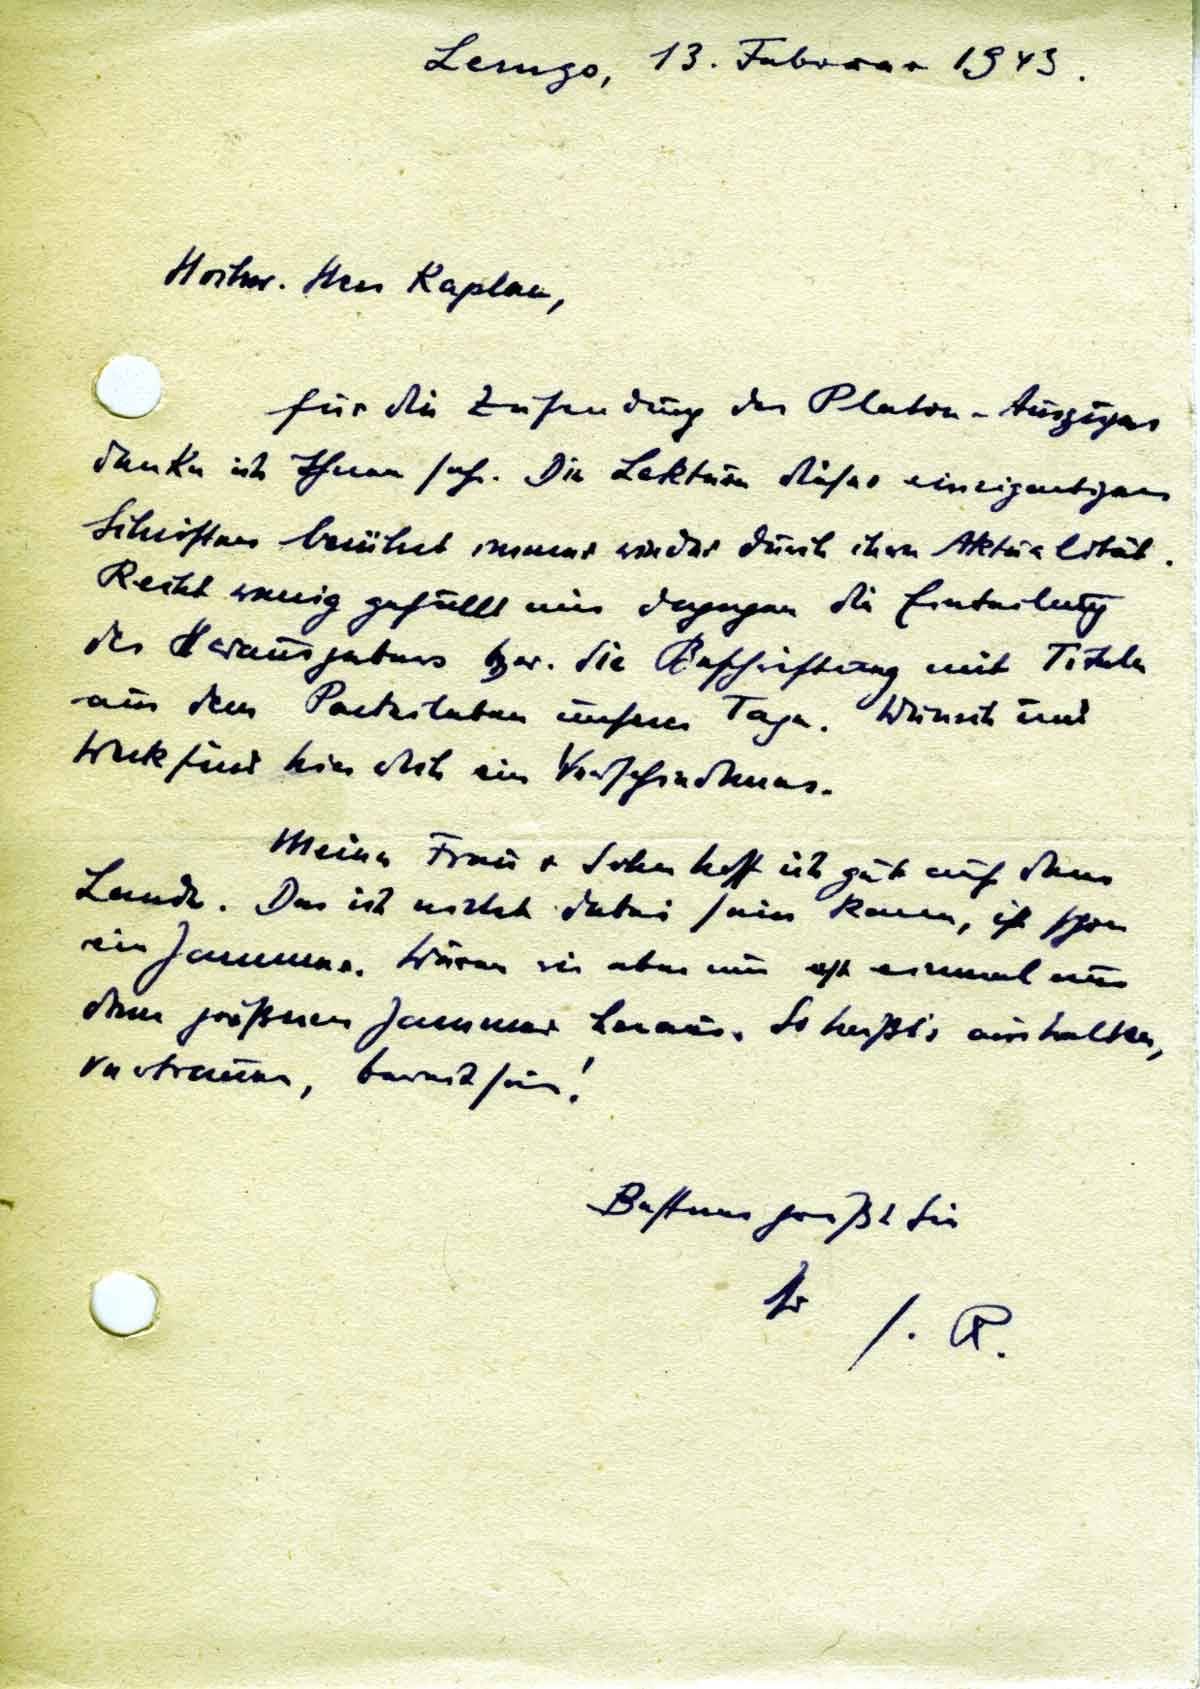 Lemgo, 13. Februar 1943.
Hochw. Herr Kaplan,
für die Zusendung des Platon-Auszuges
danke ich Ihnen sehr. Die Lektüre dieses einzigartigen
Schriftens berührt immer wieder durch ihre Aktualität.
Recht wenig gefällt mir dagegen die Einteilung
des Herausgebers bzw. die Beschriftung mit Titeln
aus dem Parteileben unserer Tage. Wunsch und
Werk sind hier doch ein Verschiedenes.
Meine Frau + Sohn hoff ich gut auf dem
Lande. Das ich nicht dabei sein kann, ist schon
ein Jammer. Wären wir aber nur erst einmal aus
dem größeren Jammer heraus. So heißt's aushalten,
vertrauen, bereit sein!
Bestens grüßt Sie
Ihr
J. R.